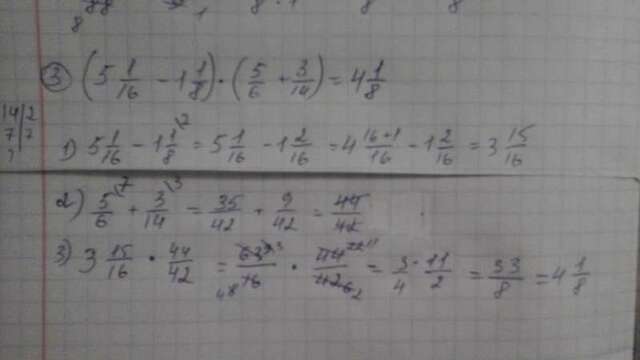 ③ (5 1/16 − 1 1/8) · (5/6 + 3/14) = 4 1/8
14|2
7|7
1) 5 1/16 − 1 1/8 = 5 1/16 − 1 2/16 = 4 16+1/16 − 1 2/16 = 3 15/16
2) 5/6 + 3/14 = 35/42 + 9/42 = 44/42
3) 3 15/16 · 44/42 = 63/16 · 44/42 = 3/4 · 11/2 = 33/8 = 4 1/8